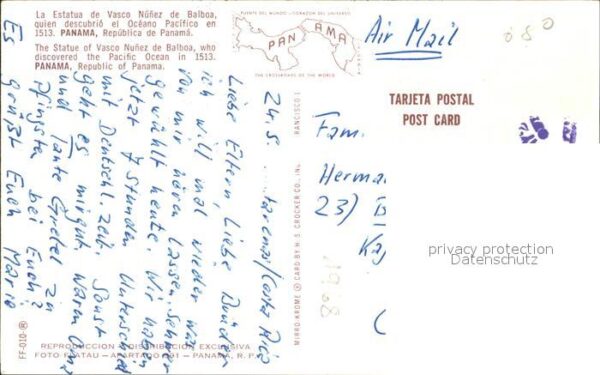 La Estatua de Vasco Núñez de Balboa,
quien descubrió el Océano Pacífico en
1513. PANAMA, República de Panamá.
The Statue of Vasco Nuñez de Balboa, who
discovered the Pacific Ocean in 1513.
PANAMA, Republic of Panama.
PUENTE DEL MUNDO - CORAZON DEL UNIVERSO
PANAMA
THE CROSSROADS OF THE WORLD
Air Mail
080
TARJETA POSTAL
POST CARD
24.5.
Costa Rica
Liebe Eltern, Liebe Brüder
ich will mal wieder was
von mir hören lassen.
gewählt heute. Wir haben
jetzt 7 Stunden Unterschied
mit Deutschl. Zeit. Sonst
geht es mir gut. Waren
und Tante Gretel zu
Pfingsten bei Euch?
Es grüßt Euch Mario
Fam.
Herma
23)
1958
MIRRO-KROME ® CARD BY H. S. CROCKER CO., IN
RANCISCO 1
FF-010-®
REPRODUCCION Y DISTRIBUCION EXCLUSIVA
FOTO FLATAU - APARTADO 691 - PANAMA, R. P.
privacy protection
Datenschutz